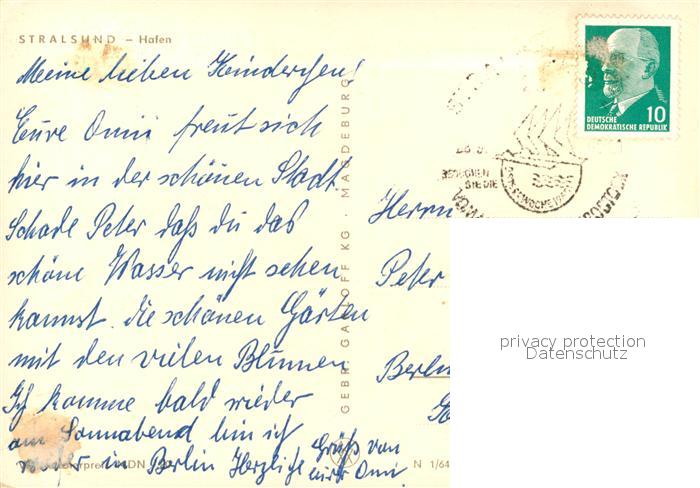 STRALSUND – Hafen
Meine lieben Kinderchen!
Eure Omi freut sich
hier in der schönen Stadt.
Schade Peter daß du das
schöne Wasser nicht sehen
kannst. die schönen Gärten
mit den vielen Blumen
Ich komme bald wieder
am Sonnabend bin ich
wieder in Berlin Herzliche Grüße von
eure Omi
GEBR. GARLOFF KG · MAGDEBURG
N 1/64
Herrn
Peter
Berlin
DEUTSCHE
DEMOKRATISCHE REPUBLIK
10
BESUCHEN
SIE DIE
privacy protection
Datenschutz